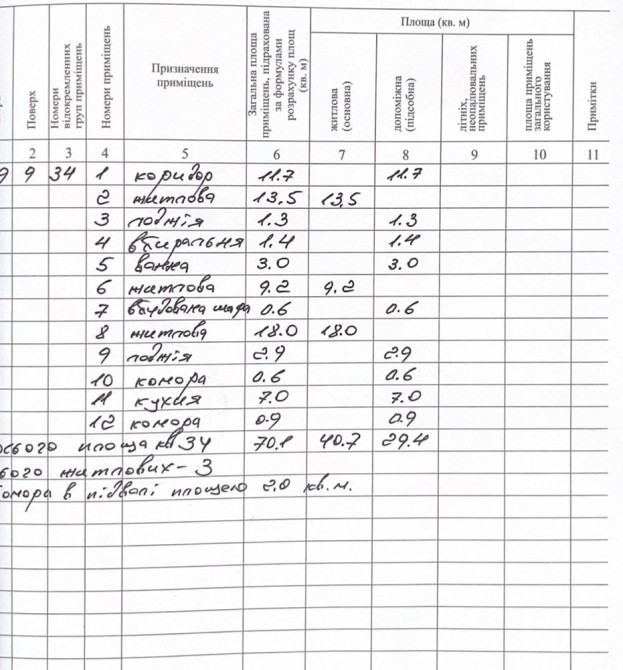 Площа (кв. м)
Поверх
Номери відокремлених груп приміщень
Номери приміщень
Призначення приміщень
Загальна площа приміщень, підрахована за формулами розрахунку площ (кв. м)
житлова (основна)
допоміжна (підсобна)
літніх, неопалювальних приміщень
площа приміщень загального користування
Примітки
2 3 4 5 6 7 8 9 10 11
9 9 34 1 коридор 11.7 11.7
2 житлова 13,5 13,5
3 лоджія 1.3 1.3
4 вбиральня 1.4 1.4
5 ванна 3.0 3.0
6 житлова 9.2 9.2
7 вбудована шафа 0.6 0.6
8 житлова 18.0 18.0
9 лоджія 2.9 2.9
10 комора 0.6 0.6
11 кухня 7.0 7.0
12 комора 0.9 0.9
сього площа кв 34 70.1 40.7 29.4
ього житлових - 3
омора в підвалі площею 2.0 кв.м.